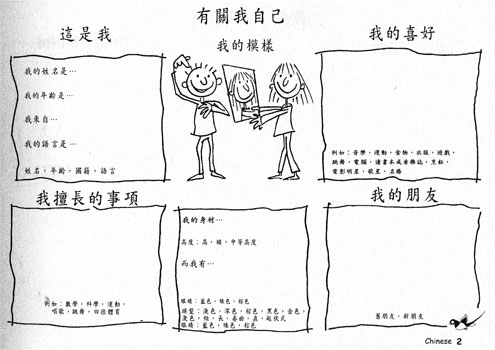 有關我自己
這是我
我的模樣
我的喜好
我的姓名是…
我的年齡是…
我來自…
我的語言是…
姓名，年齡，國籍，語言
例如：音樂，運動，食物，衣服，遊戲，
跳舞，電腦，讀書本或者雜誌，烹飪，
電影明星，歌星，名勝
我擅長的事項
例如：數學，科學，運動，
唱歌，跳舞，田徑體育
我的身材…
高度：高，矮，中等高度
而我有…
眼睛：藍色，綠色，棕色
頭髮：淺色，深色，棕色，黑色，金色，
淺色，短，長，卷曲，直，起伏式
眼睛：藍色，綠色，棕色
我的朋友
舊朋友，新朋友
Chinese 2